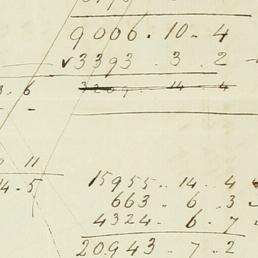 9006 . 10 . 4
3393 . 3 . 2
3. 6
11
14. 5
15955 .. 14 .. 4
663 . 6 . 3
4324 . 6 . 7
20943 .. 7 .. 2